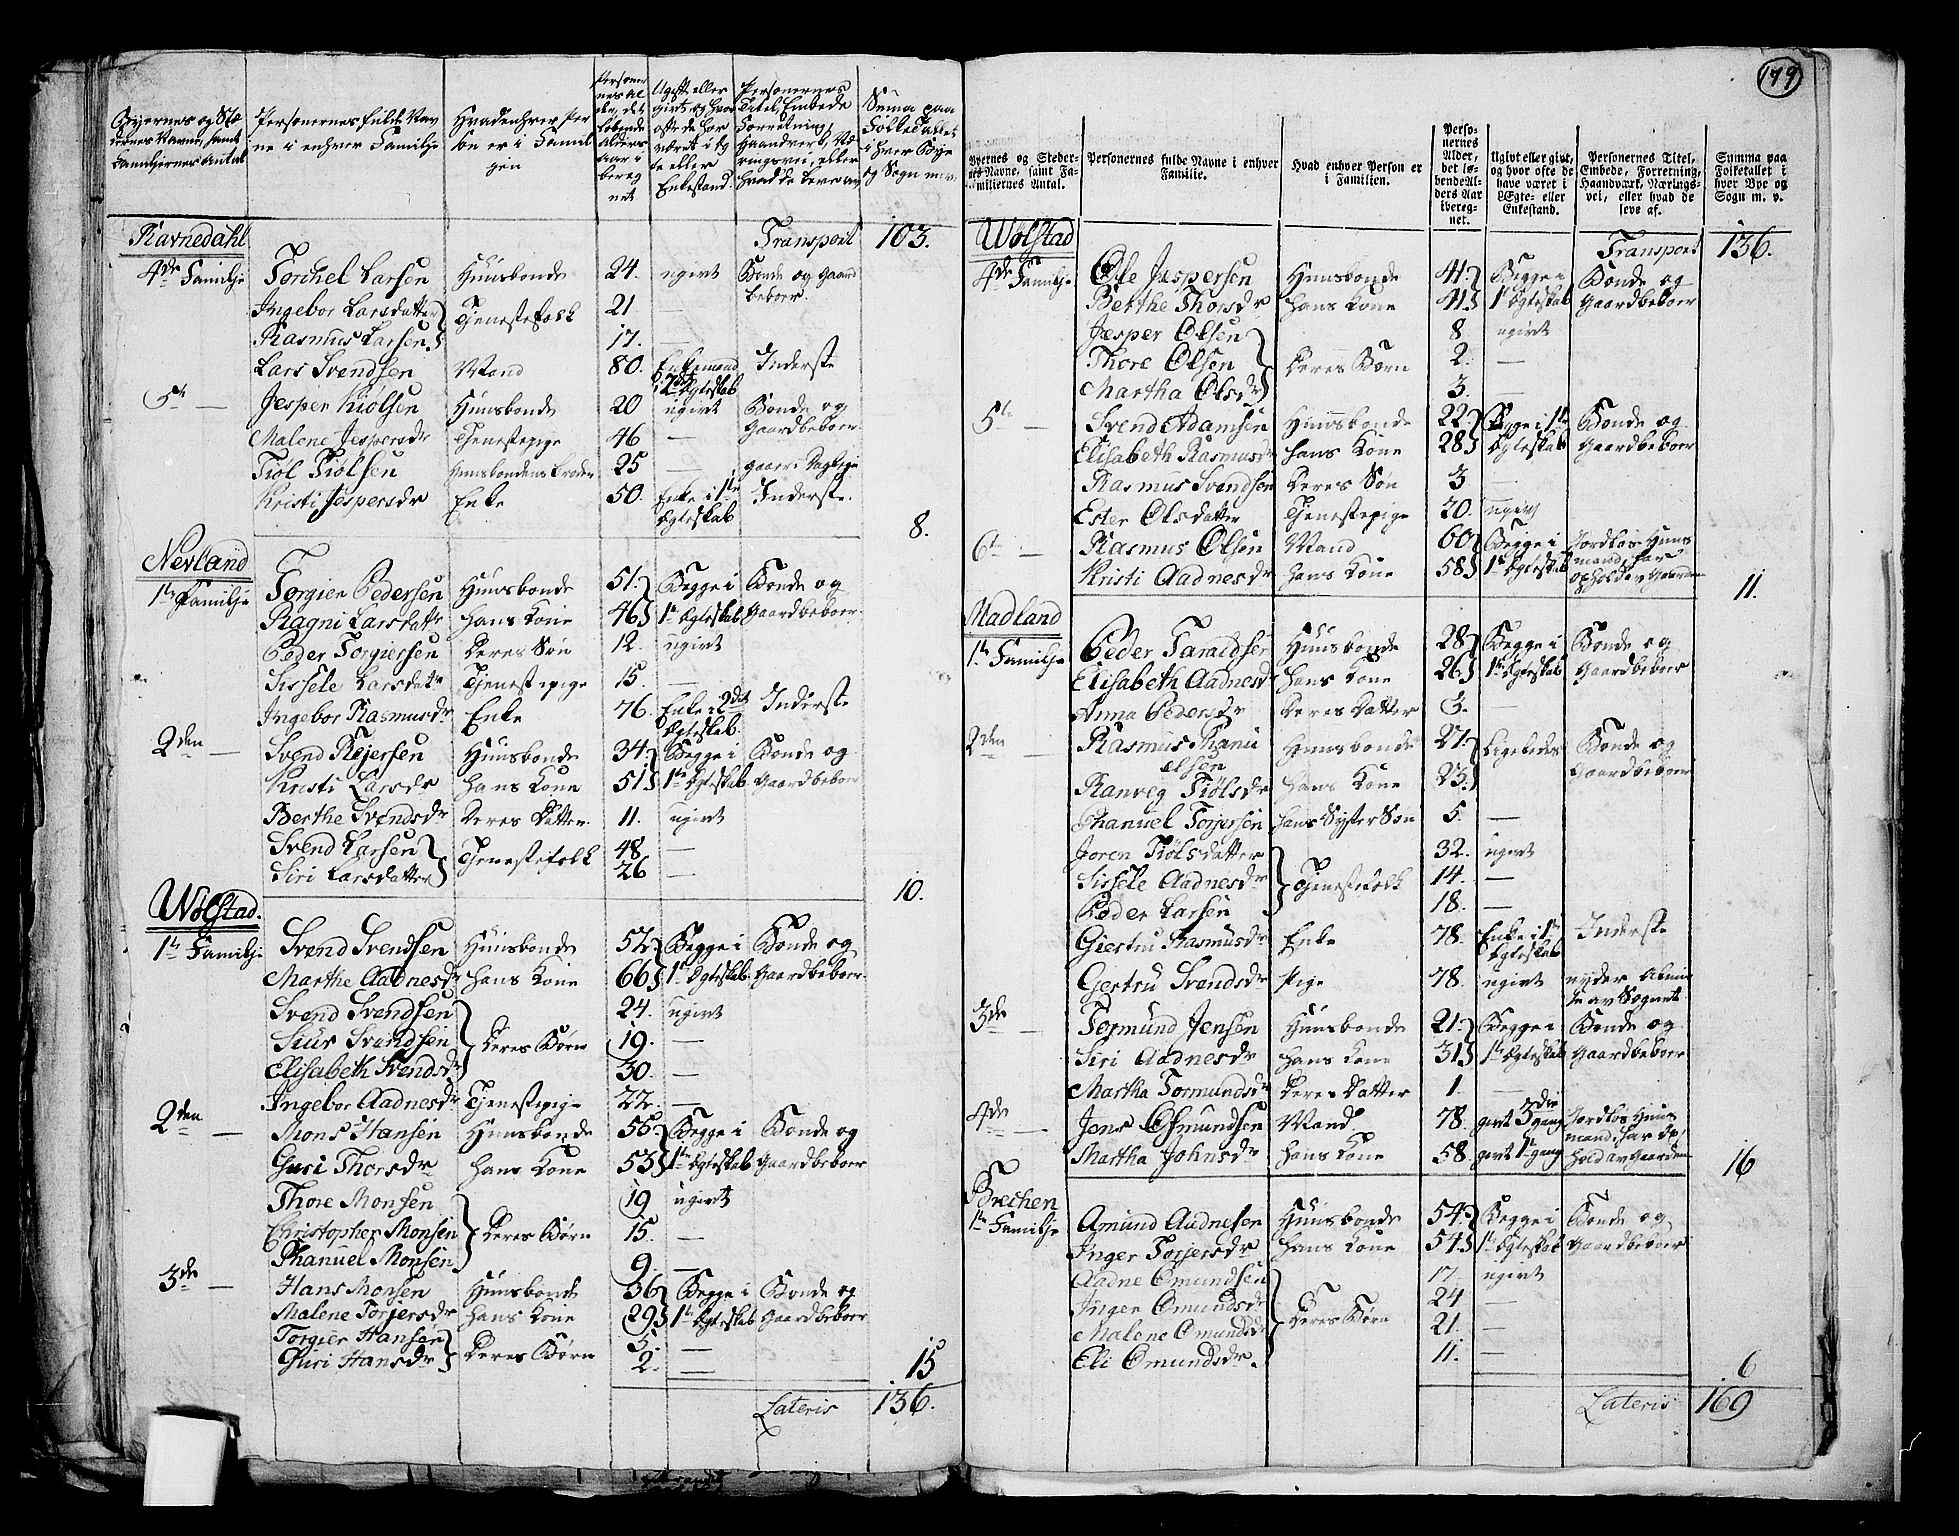 179
Gaardernes og Stedernes Navne, samt Familiernes Antal
Personernes fulde Navne i enhver Familie
Hvad enhver Person er i Familien
Personernes Alder, det løbende Alders Aar iberegnet
Ugift eller givt, og hvor ofte de har været i Egte eller Enkestand
Personernes Titel, Embede Forretning, Haandverk, Næringsvei, eller hvad de leve av
Suma paa Folketallet i hver Bye og Sogn m: v:
Ravnedahl Transport 103.
4de Familje Torchel Larsen Huusbonde 24. ugivt Bonde og Gaardbeboer.
Ingebor Larsdatter Tjenestefolk 21 —
Rasmus Larsen 17. —
Lars Svendsen Mand 80. Enkemand i 2det Egteskab Inderste
5te — Jesper Kiølsen Huusbonde 20 ugivt Bonde og Gaardbeboer
Malene Jespersdr Tjenestepige 46 —
Tiøl Tiølsen Huusbondens broder 25 — gaaer i Dagleje
Kristi Jespersdr Enke 50. Enke i 1te Egteskab Inderste.
8.
Nevland
1te Familje Torgier Pedersen Huusbonde 51. Begge i Bonde og
Ragni Larsdatr hans Kone 46 1te Egteskab Gaardbeboer.
Peder Torgiersen Deres Søn 12. ugivt
Sissele Larsdatr Tjenestepige 15. —
Ingebor Rasmusdr Enke 76. Enke i 2det Egteskab. Inderste
2den — Svend Rejersen Huusbonde 34. Begge i Bonde og
Kristi Larsdr hans Kone 51 1te Egteskab Gaardbeboer
Berthe Svendsdr Deres Datter. 11. ugivt
Svend Larsen Tjenestefolk 48 —
Siri Larsdatter 26 —
10.
Wølstad.
1te Familje Svend Svendsen Huusbonde 52. Begge i Bonde og
Marthe Aadnesdr hans Kone 66 1te Egteskab. Gaardbeboer.
Svend Svendsen 24. ugivt
Siur Svendsen Deres Børn 19. —
Elisabeth Svendsdr 30. —
Ingebor Aadnesdr Tjenestepige 22. —
2den — Mons Hansen Huusbonde 55. Begge i Bonde og
Guri Thorsdr hans Kone 53 1te Egteskab Gaardbeboer
Thore Monsen 19 ugivt
Christopher Monsen Deres Børn 15. —
Phanuel Monsen 9. —
3de — Hans Monsen Huusbonde 36 Begge i Bonde og
Malene Torjersdr hans Kone 29 1te Egteskab Gaardbeboer
Torgier Hansen Deres Børn 5. —
Guri Hansdr 2. —
15
Lateris 136.
Byernes og Stedernes Navne, samt Familiernes Antal.
Personernes fulde Navne i enhver Familie.
Hvad enhver Person er i Familien.
Personernes Alder, det løbende Alders Aar iberegnet.
Ugivt eller givt, og hvor ofte de have været i Ægte- eller Enkestand.
Personernes Titel, Embede, Forretning, Haandværk, Næringsvei, eller hvad de leve af.
Summa paa Folketallet i hver Bye og Sogn m. v.
Wølstad Transport 136.
4de Familje Ole Jespersen Huusbonde 41. Begge i Bonde og
Berthe Thorsdr hans Kone 41 1te Egteskab Gaardbeboer
Jesper Olsen 8 ugivt
Thore Olsen Deres Børn 2. —
Martha Olsdr 3. —
5te — Svend Adamsen Huusbonde 22. Begge i 1te Bonde og
Elisabeth Rasmusdr hans Kone 28 Egteskab Gaardbeboer
Rasmus Svendsen Deres Søn 3 —
Ester Olsdatter Tjenestepige 20. ugivt
6te — Rasmus Olsen Mand 60 Begge i Jordløs Huusmand, har
Kristi Aadnesdr hans Kone 58 1te Egteskab ophold av Gaarden
11.
Madland
1te Familje Peder Taraldsen Huusbonde 28 Begge i Bonde og
Elisabeth Aadnesdr hans Kone 26 1te Egteskab Gaardbeboer
Anna Pedersdr Deres Datter 3. —
2den — Rasmus Phanuelsen Huusbonde 27. Ligeledes Bonde og Gaardbeboer
Ranveg Tiølsdr hans Kone 23.
Phanuel Torjersen hans Syster Søn 5. —
Joren Tiølsdatter 32. ugivt
Sissele Aadnesdr Tjenestefolk 14. —
Peder Larsen 18. —
Giertru Rasmusdr Enke 78. Enke i 1te Egteskab Inderste
Gjertru Svendsdr Pige 78. ugivt nyder Almisse av Sognet
3de — Tormund Jensen Huusbonde 21. Begge i Bonde og
Siri Aadnesdr hans Kone 31 1te Egteskab Gaardbeboer
Martha Tormundsdr Deres Datter 1. —
4de — Jens Osmundsen Mand 78. givt 3die gang Jordløs Huusmand, har Op-
Martha Johnsdr hans Kone 58 givt 1te gang hold av Gaarden
16
Brechen
1te Familje Amund Aadnesen Huusbonde 54. Begge i Bonde og
Inger Torjersdr hans Kone 54 1te Egteskab Gaardbeboer
Aadne Omundsen 17 ugivt
Inger Omundsdr Deres Børn 24 —
Malene Omundsdr 21. —
Eli Omundsdr. 11. —
6
Lateris 169